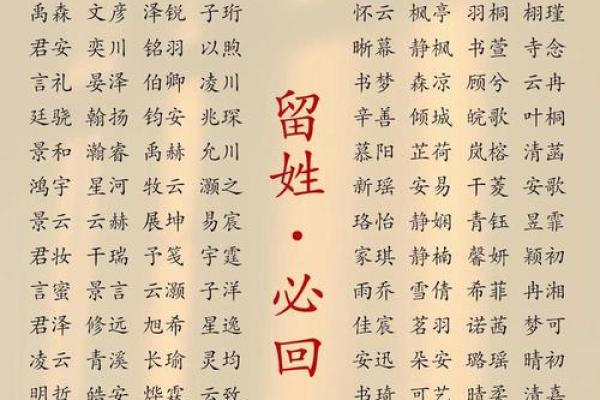 禹森 文彦 泽锐 子珩
君安 奕川 铭羽 以煦
言礼 晏泽 伯卿 凌川
廷骁 翰扬 钧安 兆琛
景和 瀚睿 禹赫 允川
鸿宇 星河 牧云 灏之
景云 云赫 展坤 易宸
君妆 干瑞 予笺 宇霆
言蜜 景言 云灏 子洋
君泽 修远 旭希 星逸
凌云 青溪 长瑜 灵均
明哲 皓安 烨霖 云致
留姓·必回
怀云 枫亭 羽桐 栩瑾
晰幕 静枫 书萱 寺念
书梦 森凉 顾兮 云冉
辛善 倾城 皖歌 叶桐
慕阳 芷荷 岚榕 清菡
新瑶 安易 千菱 安歌
珞怡 静娴 青钰 昱霏
家琪 静楠 馨妍 颖初
雨乔 雪倩 希菲 冉湘
佳宸 茗羽 诺茜 梦可
安迅 朵安 璐瑶 晴初
书琦 可艺 晴柔 清嘉